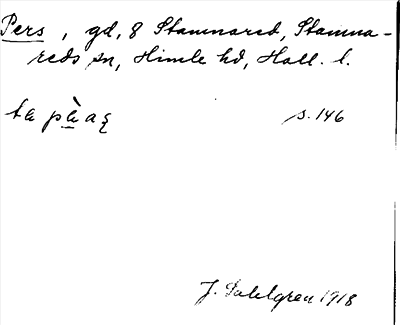 Pers, gd, 8 Stamnared, Stamna-
reds sn, Himle hd, Hall. l.
s. 146
J. Sahlgren 1918